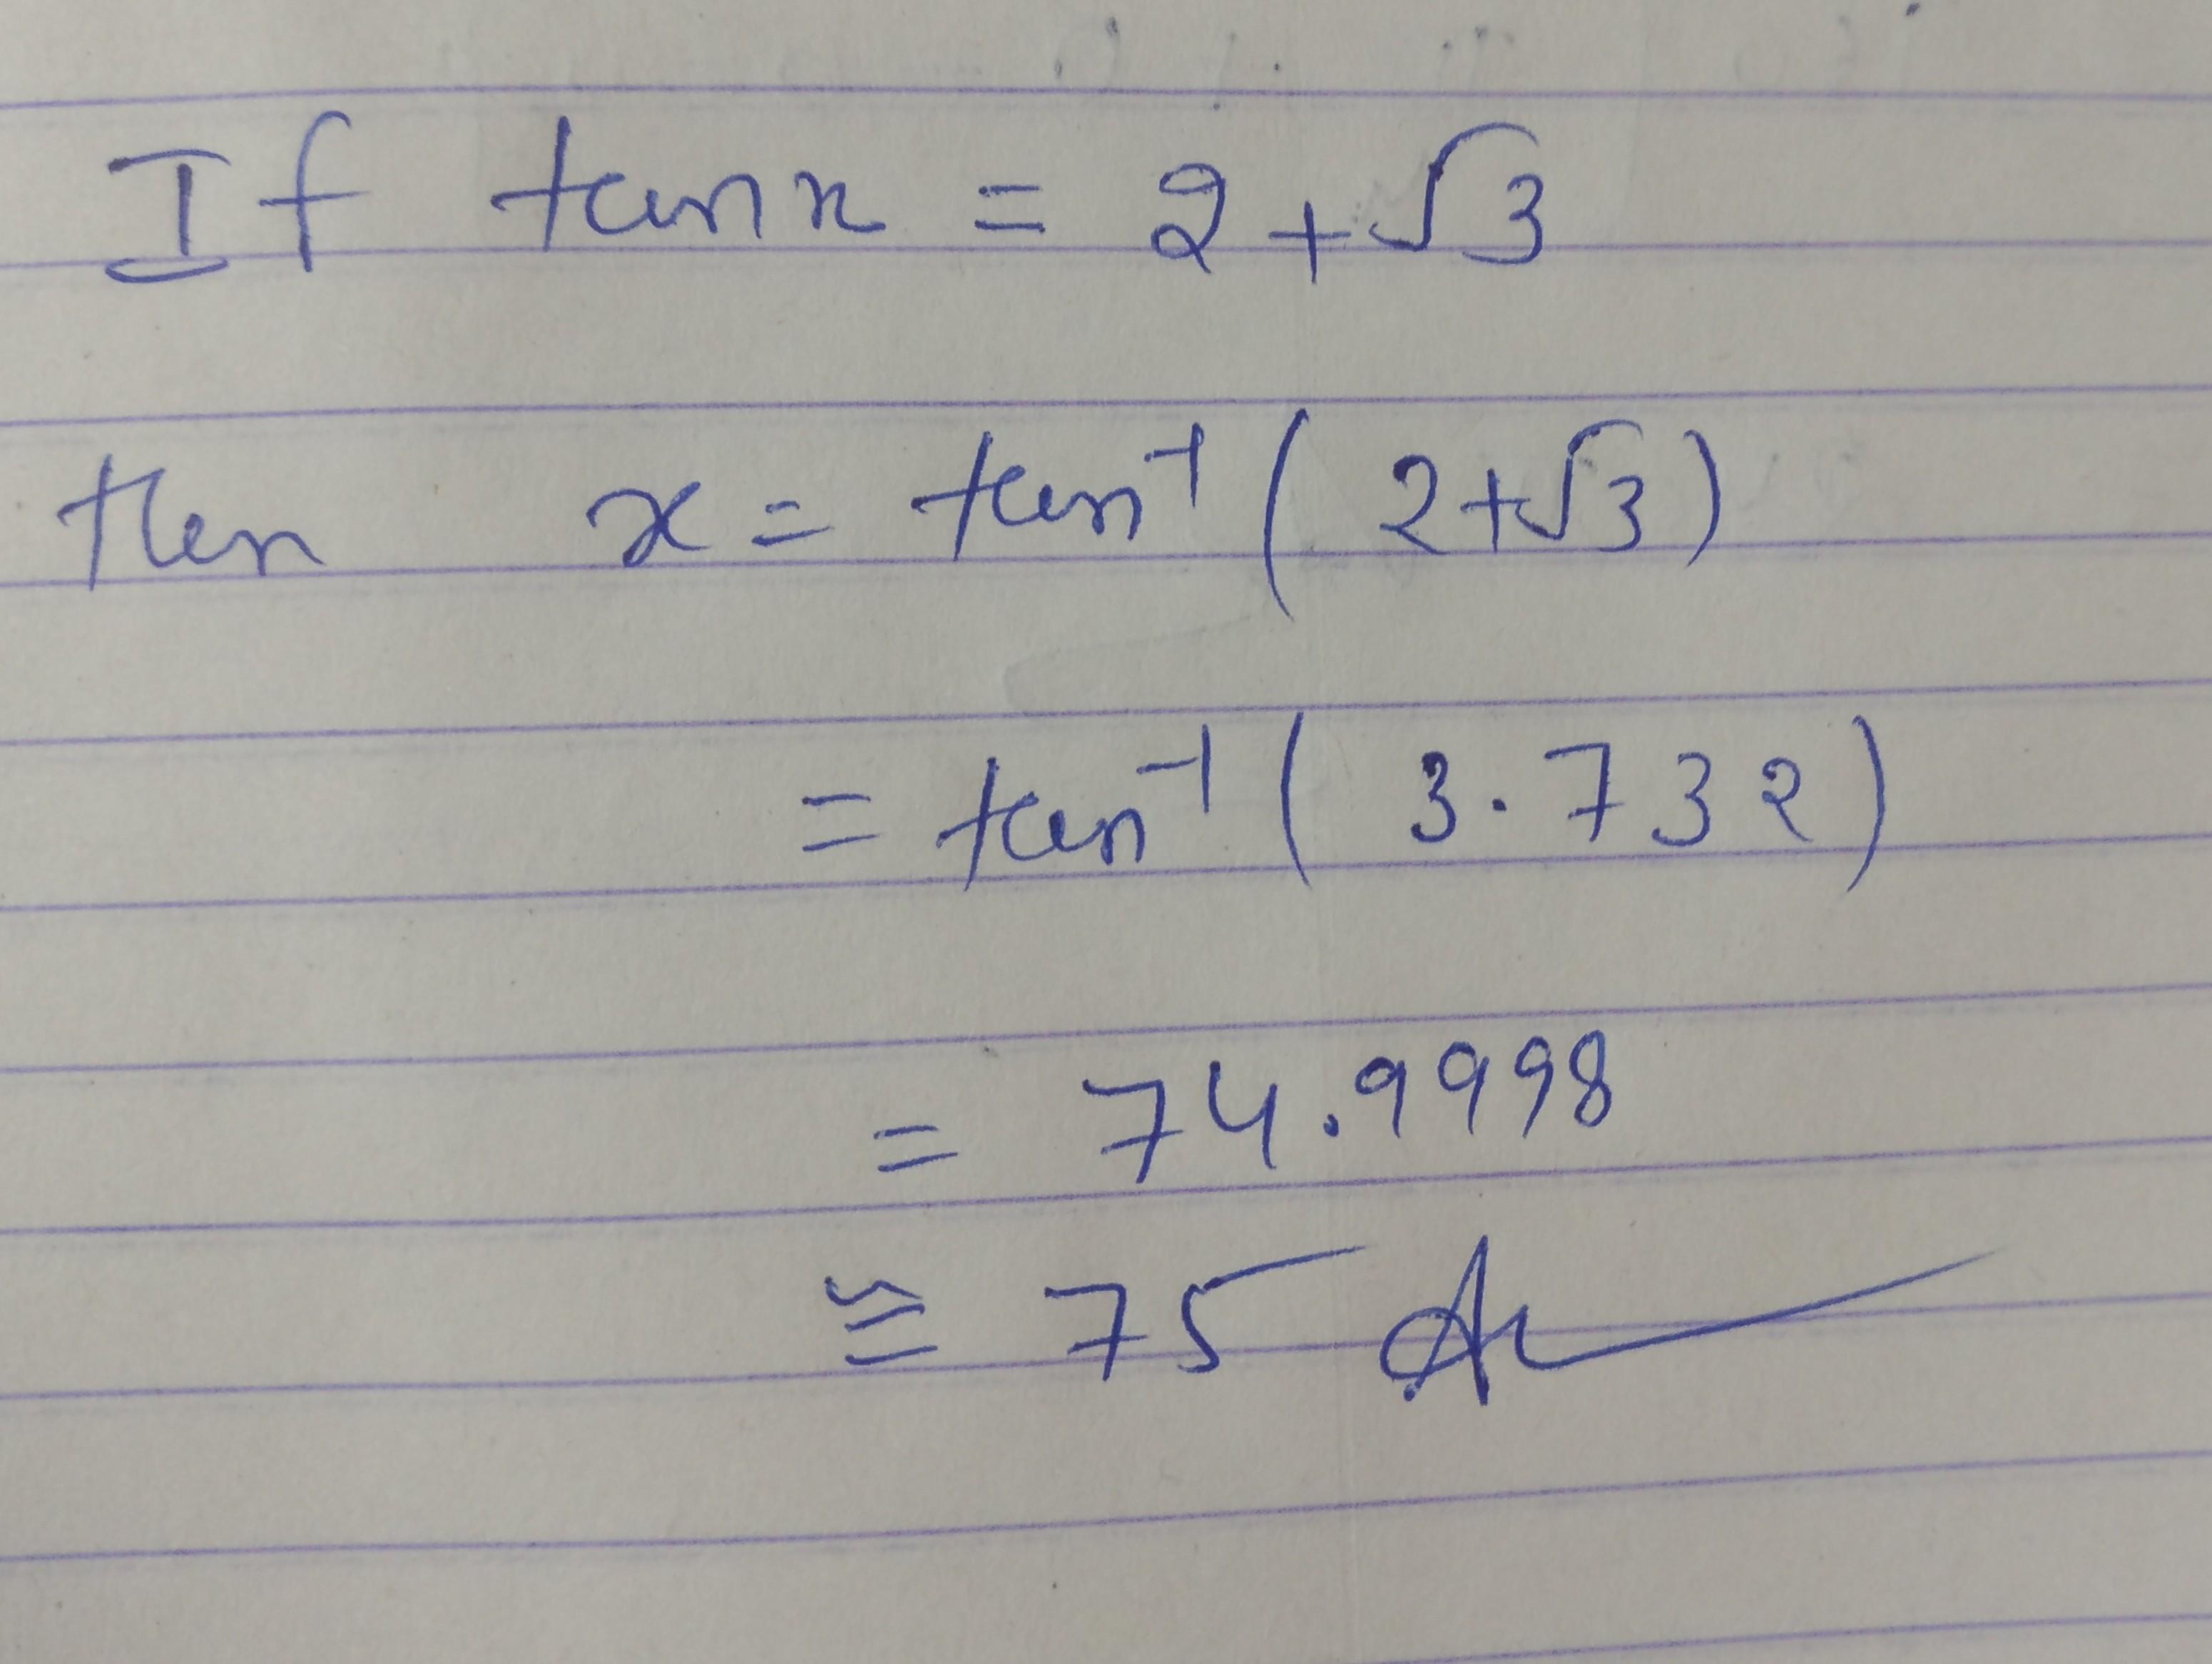 If tanx = 2+√3
then x = tan⁻¹ ( 2+√3)
= tan⁻¹ ( 3.732)
= 74.9998
≅ 75 A